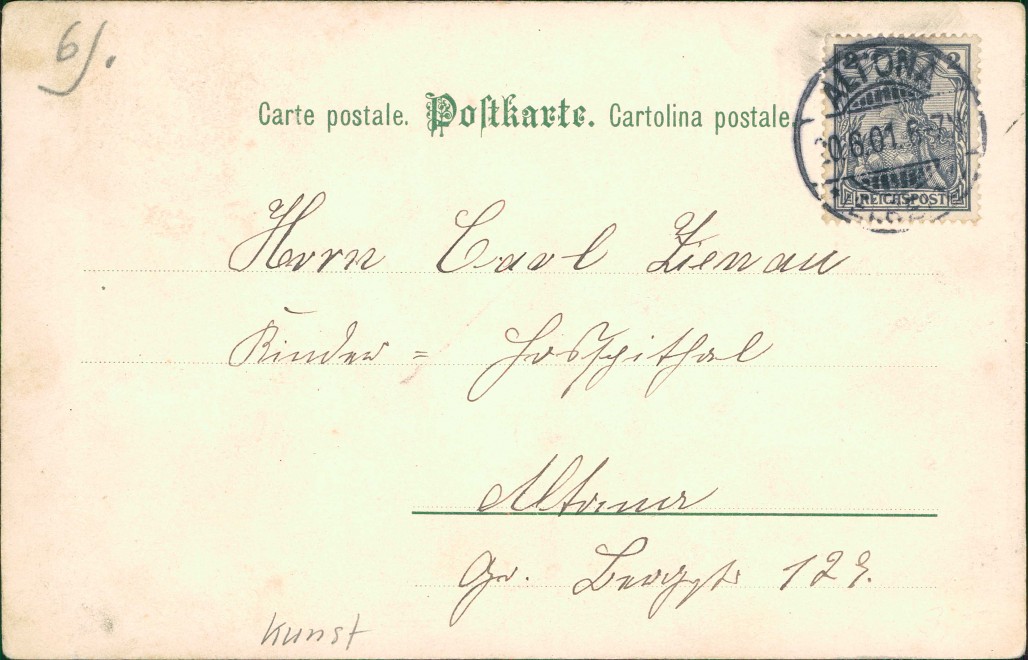 6/.
Carte postale. Postkarte. Cartolina postale.
2
ALTONA
20.6.01. 6-7N
REICHSPOST
Herrn Carl Zienau
Kinder = Hosspithal
Altona
Gr. Bergstr 129.
Kunst